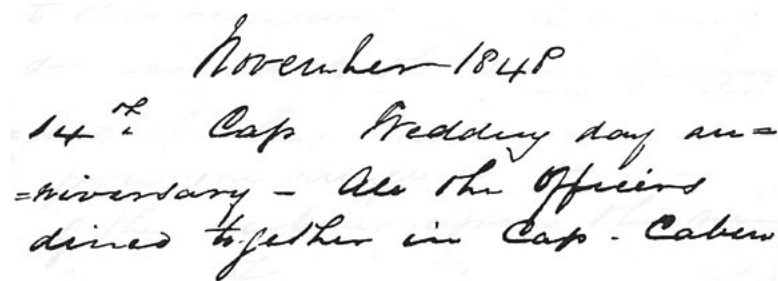 November 1848
14th Cap Wedding day an=
=niversary - All the Officers
dined together in Cap. Cabin